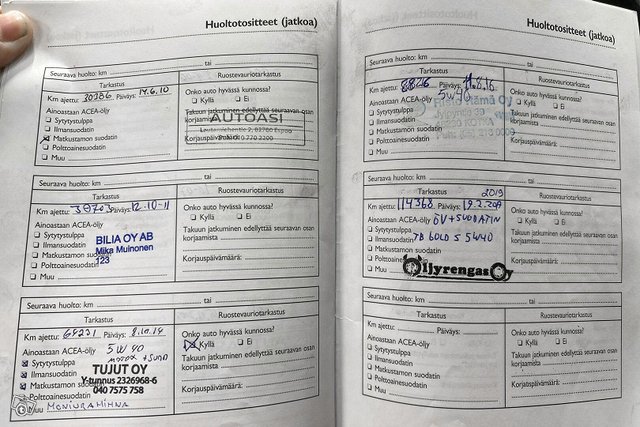 Huoltotositteet (jatkoa)
Seuraava huolto: km tai
Tarkastus Ruostevauriotarkastus
Km ajettu: 30786 Päiväys: 14.6.10 Onko auto hyvässä kunnossa?
Ainoastaan ACEA-öljy Kyllä Ei
Sytytystulppa Takuun jatkuminen edellyttää seuraavan osan
Ilmansuodatin korjaamista
Matkustamon suodatin AUTOASI
Polttoainesuodatin
Muu
Seuraava huolto: km tai
Tarkastus Ruostevauriotarkastus
Km ajettu: Päiväys: 12.10-11 Onko auto hyvässä kunnossa?
Ainoastaan ACEA-öljy Kyllä Ei
Sytytystulppa Takuun jatkuminen edellyttää seuraavan osan
Ilmansuodatin korjaamista
BILIA OY AB
Matkustamon suodatin
Mika Muinonen
Polttoainesuodatin Korjauspäivämäärä:
123
Muu
Seuraava huolto: km tai
Tarkastus Ruostevauriotarkastus
Km ajettu: 64231 Päiväys: 8.10.14 Onko auto hyvässä kunnossa?
Ainoastaan ACEA-öljy 5W40 Kyllä Ei
Sytytystulppa Takuun jatkuminen edellyttää seuraavan osan
Ilmansuodatin korjaamista
TUJUT OY
Matkustamon suodatin
Y-tunnus 2326968-6
Polttoainesuodatin Korjauspäivämäärä:
040 7575 758
Muu MONIURAHIHNA
Huoltotositteet (jatkoa)
Seuraava huolto: km tai
Tarkastus Ruostevauriotarkastus
Km ajettu: Päiväys: 11.8.16 Onko auto hyvässä kunnossa?
Ainoastaan ACEA-öljy 5W40 Kyllä Ei
Sytytystulppa Takuun jatkuminen edellyttää seuraavan osan
Ilmansuodatin korjaamista
Matkustamon suodatin
Polttoainesuodatin Korjauspäivämäärä:
Muu
Seuraava huolto: km tai
Tarkastus 2019 Ruostevauriotarkastus
Km ajettu: 114368 Päiväys: 19.2 Onko auto hyvässä kunnossa?
Ainoastaan ACEA-öljy ÖV+SUODATIN Kyllä Ei
Sytytystulppa Takuun jatkuminen edellyttää seuraavan osan
Ilmansuodatin 5W40 korjaamista
Matkustamon suodatin
Polttoainesuodatin Korjauspäivämäärä:
Öljyrengas Oy
Seuraava huolto: km tai
Tarkastus Ruostevauriotarkastus
Km ajettu: Päiväys: Onko auto hyvässä kunnossa?
Ainoastaan ACEA-öljy Kyllä Ei
Sytytystulppa Takuun jatkuminen edellyttää seuraavan osan
Ilmansuodatin korjaamista
Matkustamon suodatin
Polttoainesuodatin Korjauspäivämäärä:
Muu